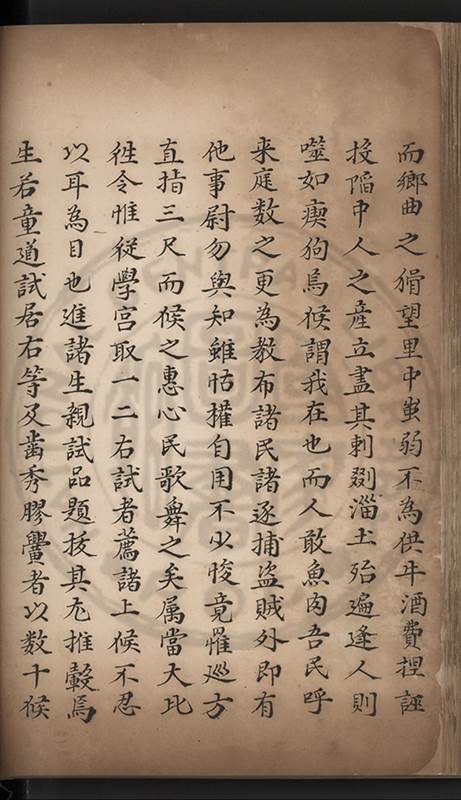 而鄉曲之猾望里中蚩弱不為供牛酒費揑誣
投陷中人之產立盡其刺剟淄土殆遍逢人則
噬如瘈狗焉候謂我在也而人敢魚肉吾民呼
来庭数之更為教布諸民諸逐捕盗賊外即有
他事尉勿與知雖怙權自用不少悛竟罹廵方
直指三尺而候之惠心民歌舞之矣属當大比
徃令惟従學宫取一二右試者薦諸上候不忍
以耳為目也進諸生親試品題拔其尤推轂焉
生若童遒試居右等及齒秀膠黌者以数十候